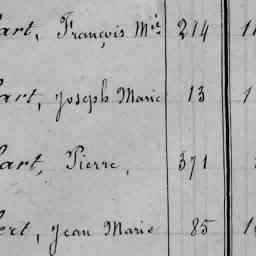 art, François Mie 214 1
art, Joseph Marie 13 1
art, Pierre, 371
ert, Jean Marie 85 1